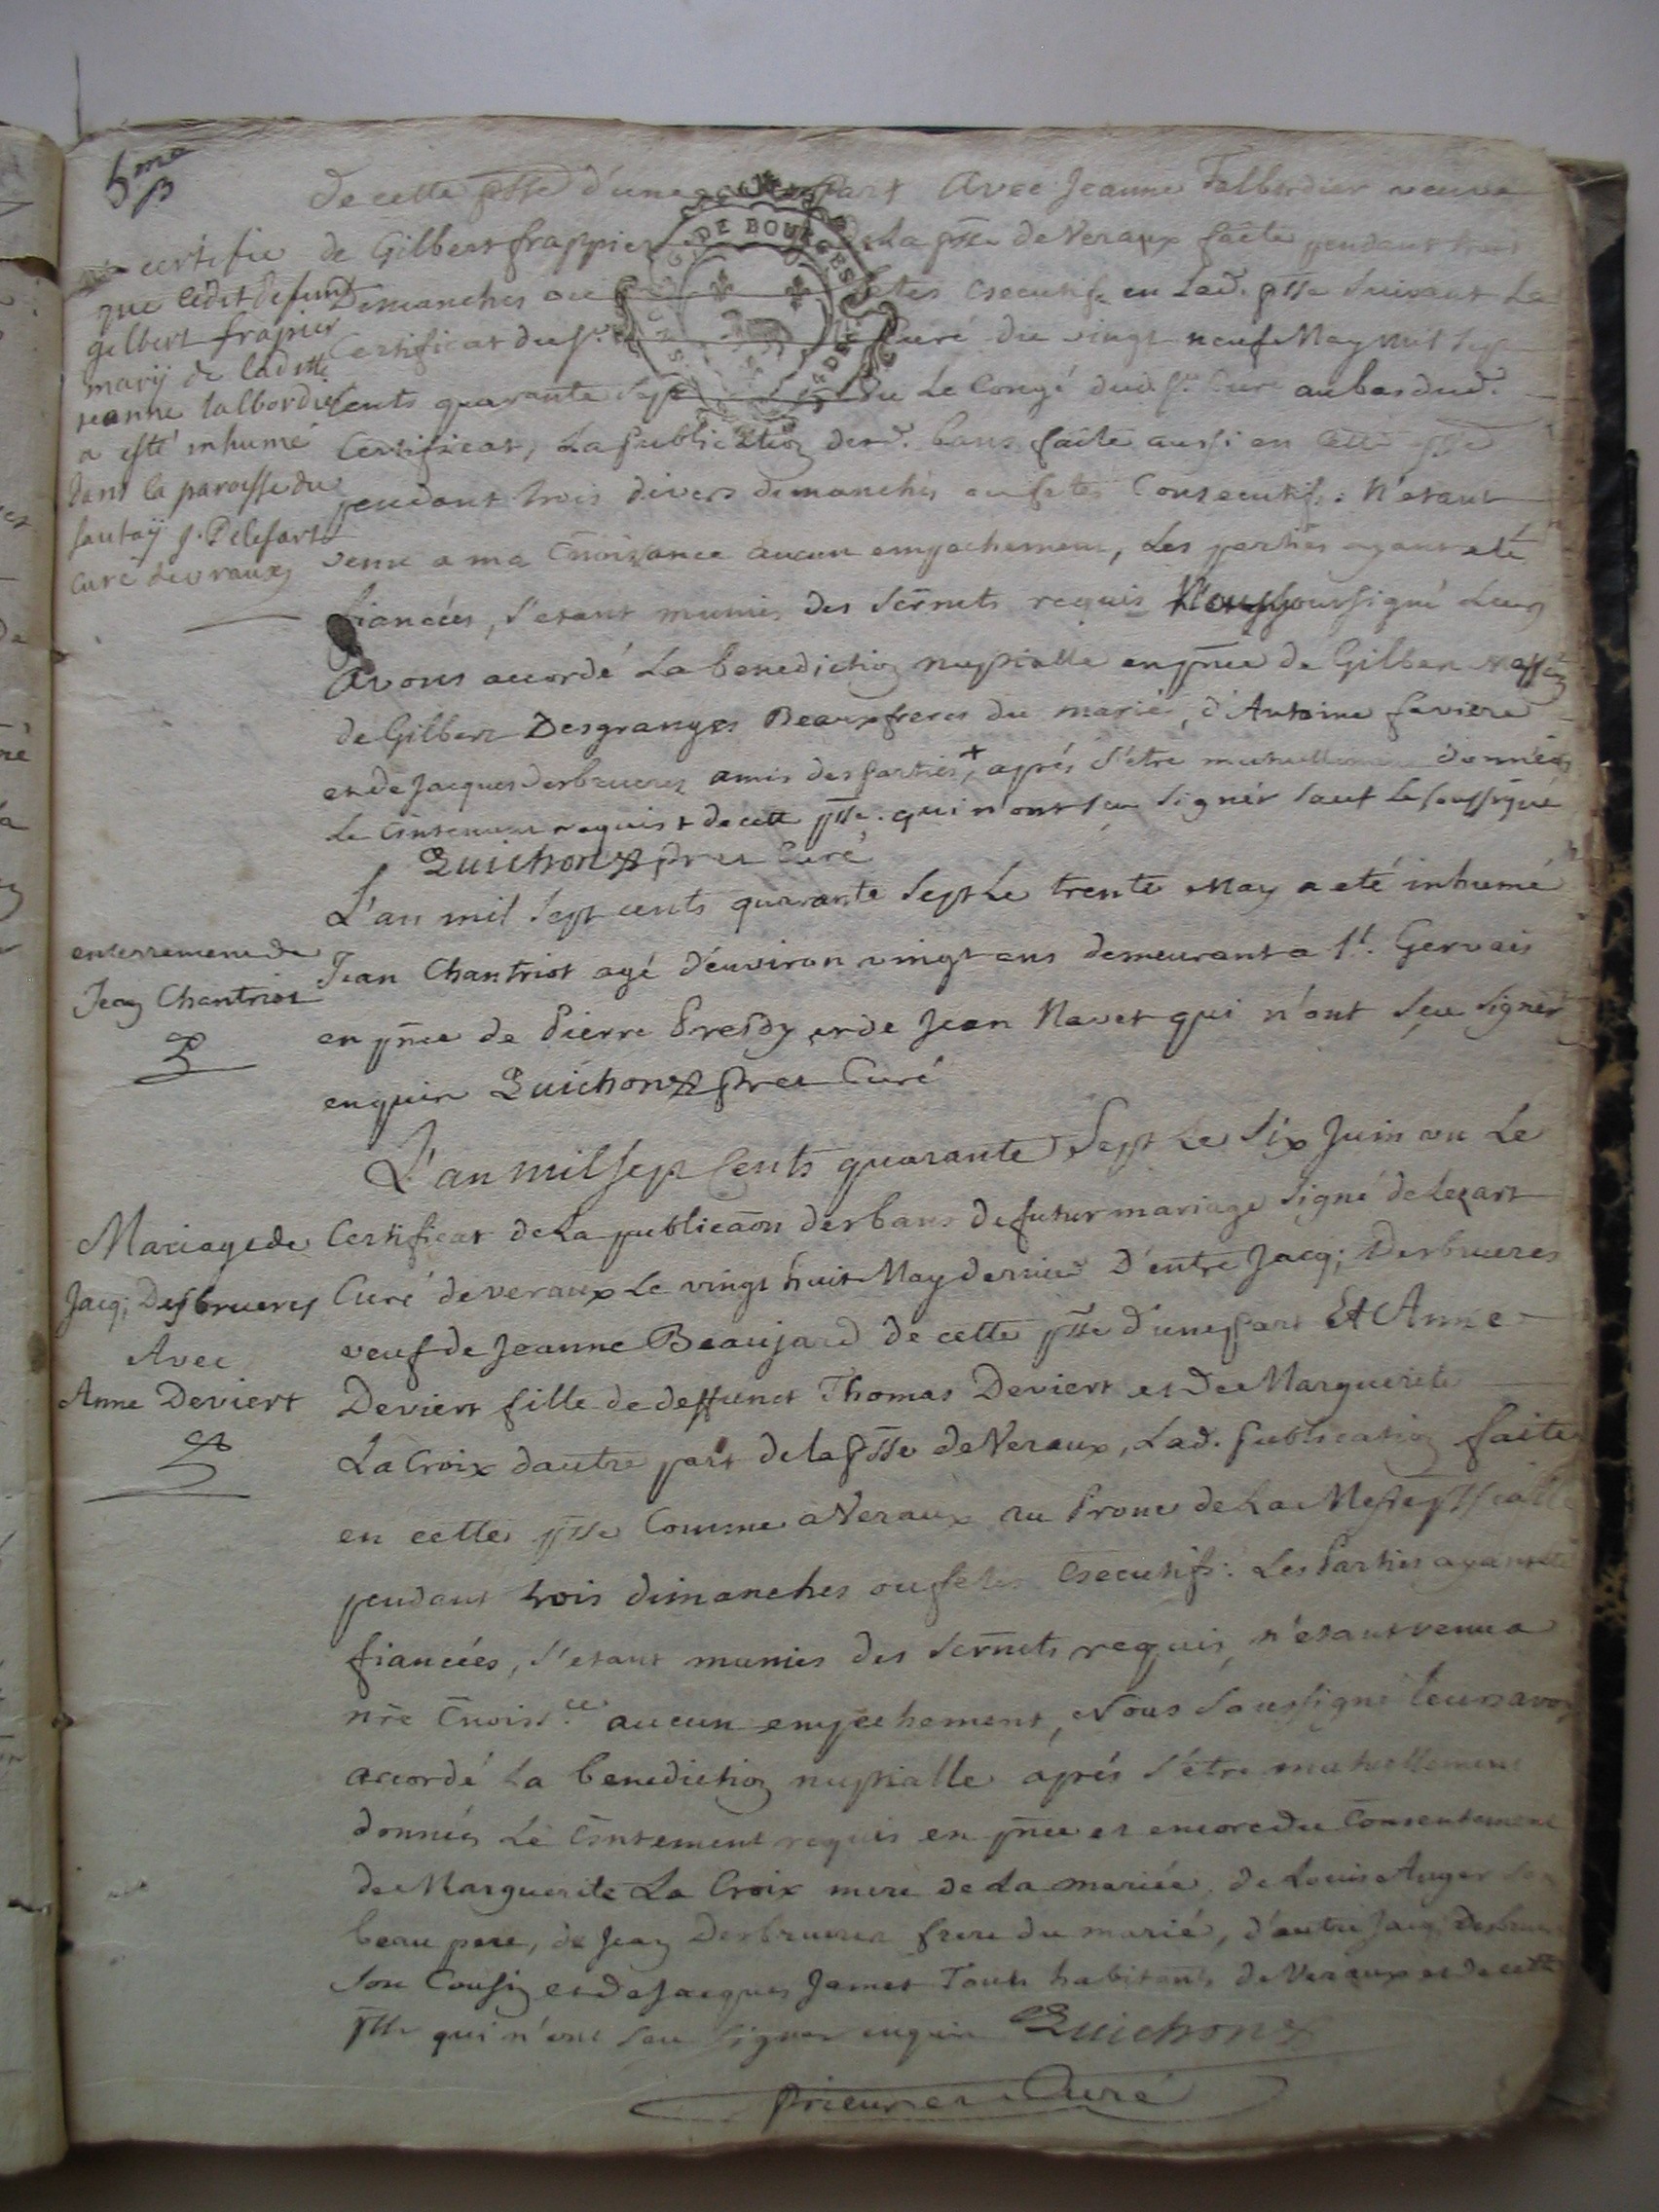 5me
de cette psse d'une part Avec Jeanne Talbordier veuve
de Gilbert frappier de la psse de Veraux faite pendant trois
Dimanches ou fetes csecutifs en lad. psse suivant Le
Certificat du sr. Curé du vingt neuf May mil sept
cents quarante sept Le Congé dud. sr. Curé au bas dud.
Certificat, La publication desd. bans faite aussi en cette psse
pendant trois divers dimanches ou fetes Consecutifs: N'etant
venu a ma Cnoissance aucun empechement, Les parties ayant eté
fiancées, s'etant munies des Scrnets requis Nous soussigné Leurs
Avons accordé La benediction nuptialle en pnce de Gilber
de Gilbert Desgranges Beauxfreres du marié, d'Antoine faviere
et de Jacques desbrueres amis des parties +, après s'être mutuellement donnés
Le Csntement requis + de cette psse. qui n'ont seu signér sauf Le soussigné
Quichon pr et Curé
certifie
que ledit defunt
gilbert frapier
marÿ de laditte
jeanne talbordier
a esté inhumé
dans la paroisse du
sautaÿ j. Delesart
curé de veraux
L'an mil sept cents quarante sept Le trente May a eté inhumé
Jean Chantriot agé d'environ vingt ans demeurant a St. Gervais
en pnce de Pierre et de Jean Navet qui n'ont seu signér
enquir Quichon pr et Curé
enterrement de
Jean Chantriot
L'an mil sept Cents quarante Sept Le Six Juin vu Le
Certificat de La publicaon des bans de futur mariage signé de Lezart
Curé de veraux Le vingt huit May dernier D'entre Jacq; Desbrueres
veuf de Jeanne Beaujard de cette psse d'une part Et Anne
Deviert fille de deffunct Thomas Deviert et De Marguerite
La Croix dautre part de la psse de Veraux, Lad. publication faite
en cette psse Comme a Veraux au Prone de La Messe pssialle
pendant trois dimanches ou fetes Csecutifs: Les Parties ayant eté
fiancées, s'etant munies des Scrnets requis, n'etant venu a
nre Cnoiss.ce aucun empechement, Nous Soussigné leurs avons
accordé La benediction nuptialle après s'être mutuellement
donnés Le Csntement requis en pnce et encore du Consentement
de Marguerite La Croix mere de La mariée, de Louis Auger son
beau pere, de Jean Desbrueres frere du marié, d'autre Jacq; Desbrueres
son Cousin et de Jacques Jamet Tous habitants de Veraux et de cette
psse qui n'ont seu signer enquir Quichon
Prieur et Curé
Mariage de
Jacq; Desbrueres
Avec
Anne Deviert
DE BOURGES